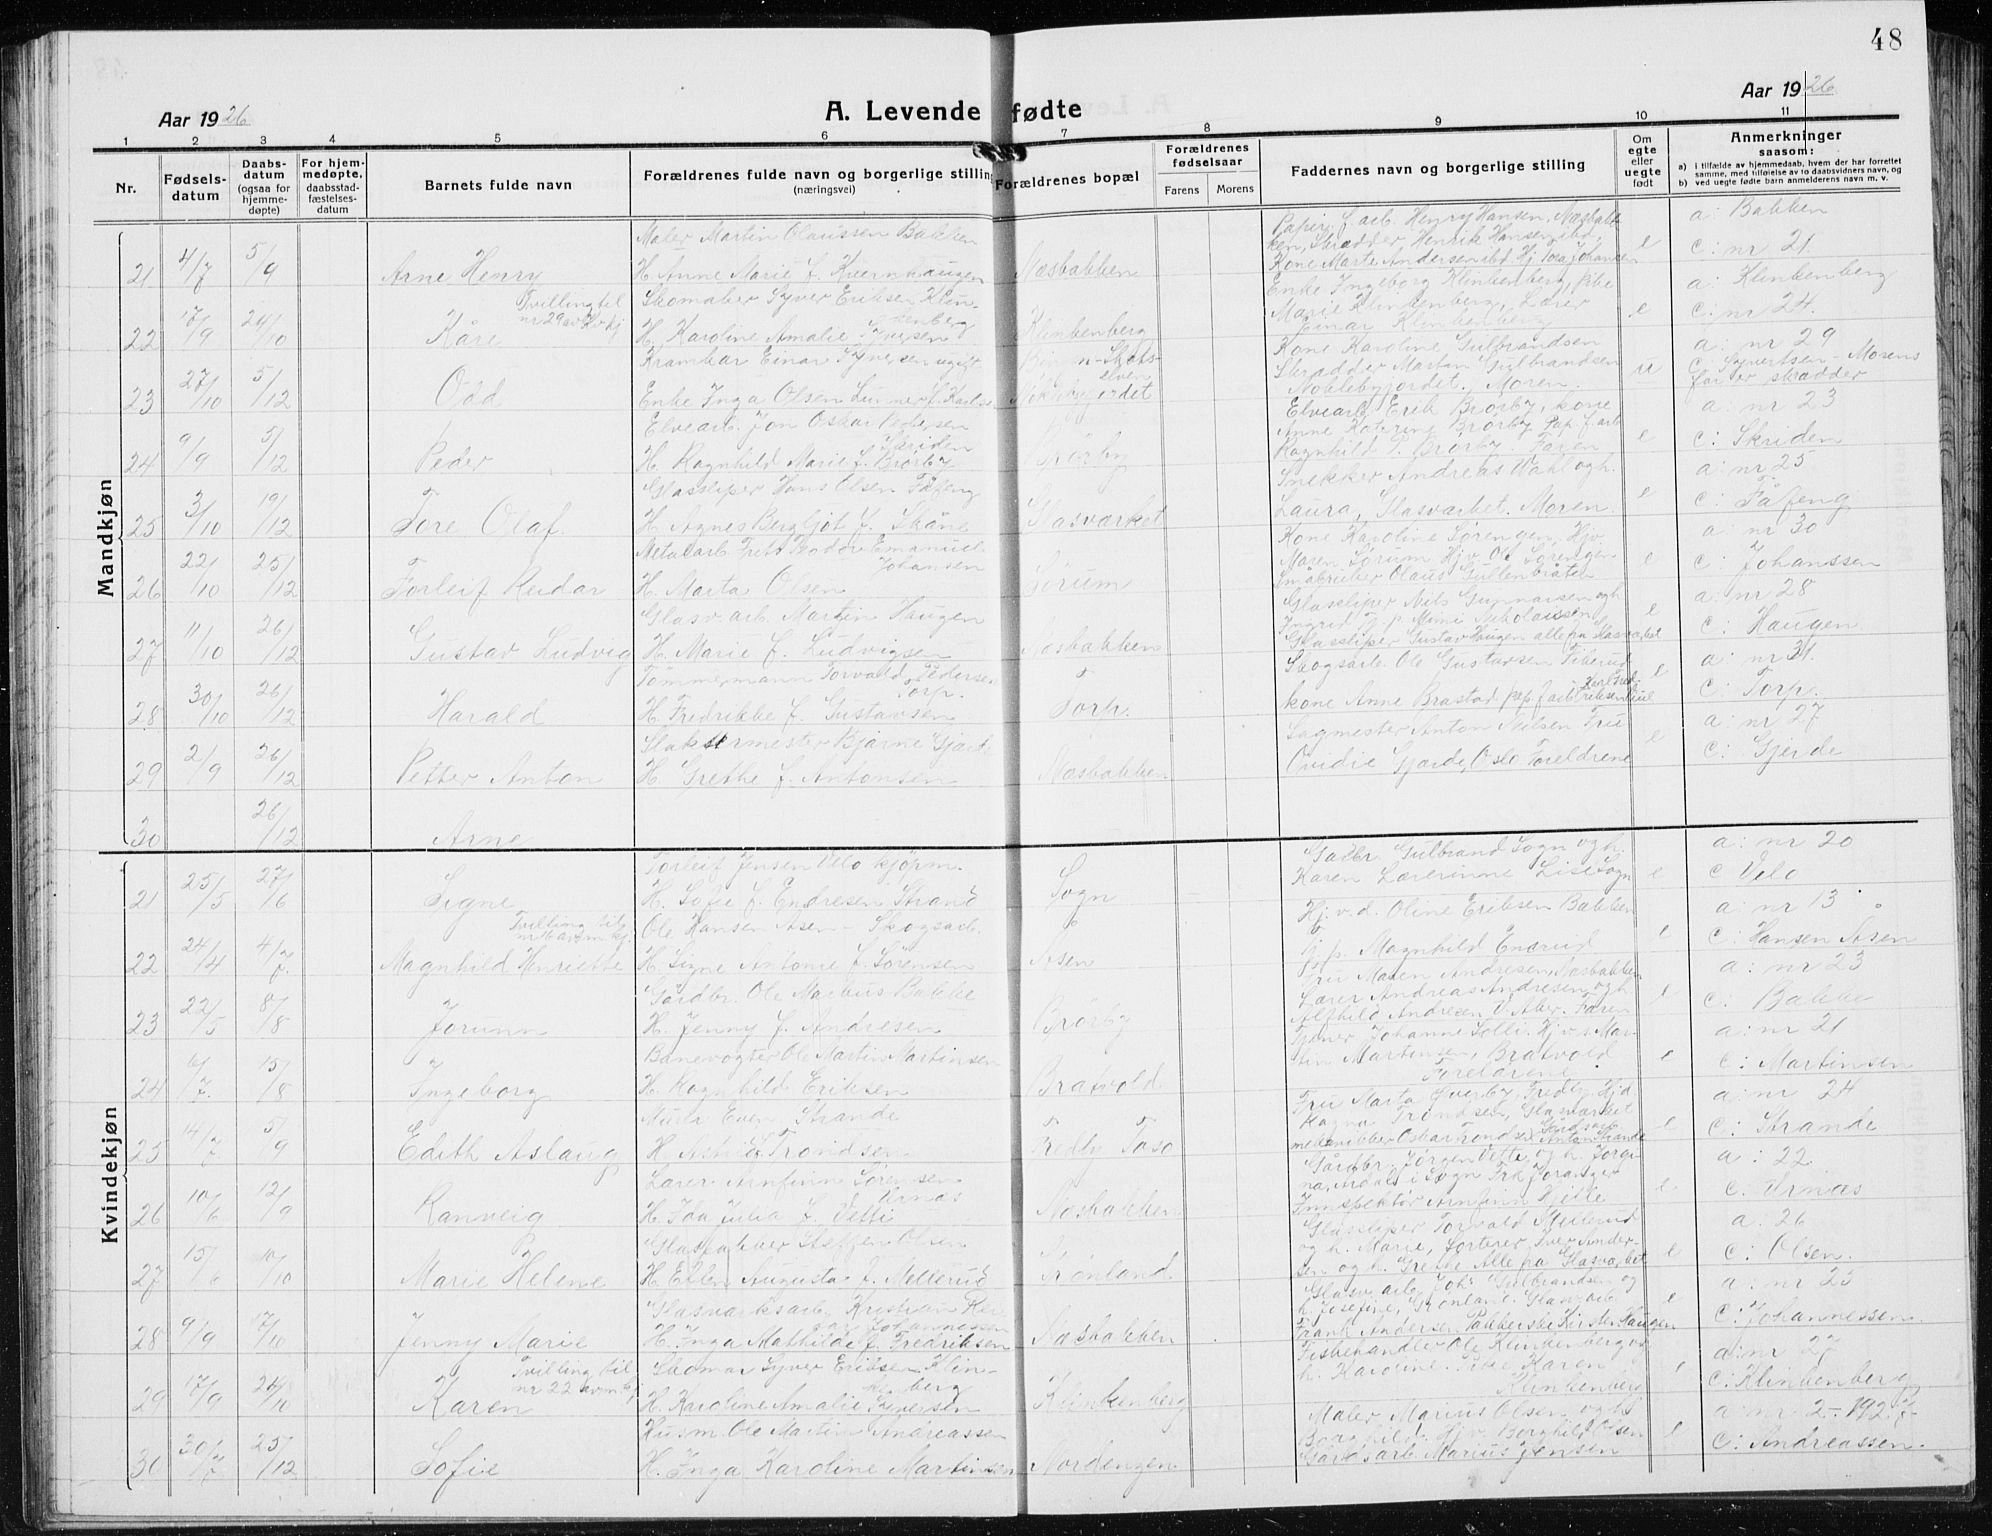 48
Aar 1926
A. Levende fødte
Aar 1926
1 2 3 4 5 6 7 8 9 10 11
Nr.
Fødsels-
datum
Daabs-
datum
(ogsaa for
hjemme-
døpte)
For hjem-
medøpte,
daabsstad-
fæstelses-
datum
Barnets fulde navn
Forældrenes fulde navn og borgerlige stilling
(næringsvei)
Forældrenes bopæl
Forældrenes
fødselsaar
Farens Morens
Faddernes navn og borgerlige stilling
Om
egte
eller
uegte
født
Anmerkninger
saasom:
a) i tilfælde av hjemmedaab, hvem der har forrettet
samme, med tilføielse av to daabsvidners navn, og
b) ved uegte fødte barn anmelderens navn m. v.
Mandkjøn
21 4/7 5/9 Arne Henry
Maler Martin Olaussen Bakken
H. Anne Marie f. Kvernhaugen
Næsbakken
Papirf. arb. Henry Hansen, Næsbak-
ken, Skrædder Henrik Hansen ibd,
Kone Marte Andersen ibd Hj. Tora Johansen
e
a: Bakken
c: nr 21
22 17/9 24/10 Kåre
Tvilling til
nr 29 av kv kj
Skomaker Syver Eriksen Klin-
kenberg
H. Karoline Amalie Iversen
Klinkenberg
Enke Ingeborg Klinkenberg, pike
Marie Klinkenberg, Lærer
Einar Klinkenberg
e
a: Klinkenberg
c: nr 24.
23 27/10 5/12 Odd
Krambar Einar Syversen ugift
Enke Inga Olsen Lunner f. Karlsen
Kone Karoline Gulbrandsen
Skrædder Martin Gulbrandsen
Noklebyjordet. Moren
u
a: nr 29
c: Syvertsen - Morens
far er skrædder
24 9/9 5/12 Peder
Elvearb. Jon Oskar Pedersen
Skriden
H. Ragnhild Marie f. Brørby
Brørby
Elvearb. Erik Brørby, kone
Anne Katerine Brørby Pap. f. arb
Ragnhild P. Brørby. Faren
e
a: nr 23
c: Skriden
25 3/10 19/12 Tore Olaf.
Glassliper Hans Olsen Fåfeng
H. Agnes Bergljot f. Skåne
Glasværket
Snekker Andreas Dahl og h.
Laura, Glasværket. Moren.
e
a: nr 25
c: Fåfeng
26 22/10 25/12 Torleif Reidar
Metalarb. Frits Teodor Emanuel
Johansen
H. Marta Olsen
Sørum
Kone Karoline Sørengen, Hjv.
Maren Sørum Hjv. Ole Sørengen
Småbruker Olaus Gullenbråten
e
a: nr 30
c: Johanssen
27 11/10 26/12 Gustav Ludvig
Glasv. arb. Martin Haugen
H. Marie f. Ludvigsen
Næsbakken
Glassliper Nils Gunnarsen og h
Ingrid G. p. Mimi Nikolaissen
Glassliper Gustav Haugen alle på Glasværket
e
a: nr 28
c: Haugen
28 30/10 26/12 Harald
Tømmermann Torvald Pedersen
Torp.
H. Fredrikke f. Gustavsen
Torp.
Skogsarb. Ole Gustavsen Tiberud
kone Anne Brastad pap. f. arb
e
a: nr 31
c: Torp.
29 2/9 26/12 Petter Anton
Slaktermester Bjarne Gjerde
H. Grethe f. Antonsen
Næsbakken
Sagmester Anton Nilsen Frü
Ovidie Gjerde, Oslo Foreldrene
e
a: nr 27
c: Gjerde
30 26/12 Arne
Kvindekjøn
21 25/5 27/6 Signe
Torleif Jensen Velo kjøpm.
H. Sofie f. Endresen Strand
Sogn
Gårdbr. Gulbrand Sogn og h.
Karen Lærerinne Lise Sogn
e
a: nr 20
c Velo
22 24/4 4/7. Magnhild Henriette
Tvilling til
nr 16 av m. kj.
Ole Hansen Åsen - Skogsarb.
H. Signe Antonie f. Sørensen
Åsen
Hj. v. d. Oline Eriksen Bakken
g. p. Magnhild Endrud
e
a: nr 13
c: Hansen Åsen
23 22/5 8/8 Jorunn
Gårdbr. Ole Markus Bakke
H. Jenny f. Andresen
Brørby
Fru Maren Andresen, Næsbakken
Lærer Andreas Andresen, og h
Alfhild Andresen V. Aker. Faren
e
a: nr 23
c: Bakke
24 6/7. 15/8 Ingeborg
Banevogter Ole Martin Martinsen
H. Ragnhild Eriksen
Bratvold
Tjener Johanne Solli. Hjv.s Mar-
tin Martinsen, Bratvold
Foreldrene
e
a: nr 21
c: Martinsen
25 14/7 5/9 Edith Aslaug
Murer Even Strande
H. Astrid f. Trondsen
Fredly Taso
Fru Marta Overby, Fredly Hjd
Ragna Trondsen, Glasværket
Mekaniker Oskar Trondsen Gårdsarb
Anton Strande
e
a: nr 24
c: Strande
26 10/6 12/9 Ranveig
Lærer Arnfinn Sørensen
Urnæs
H. Ida Julia f. Vetti
Næsbakken
Gårdbr. Jørgen Vette og h. Jorgi-
na, Årdal i Sogn Frk Joranger
Innspektør Arnfinn Hjelle
e
a: 22
c. Urnæs
27 15/6 10/10 Marie Helene
Glaspakker Steffen Olsen
H. Ellen Augusta f. Mellerud
Grønland
Glassliper Torvald Mellerud
og h. Marie, Sorterer Iver Ander-
sen og h. Grethe Alle på Glasværket
e
a. 26
c: Olsen.
28 9/9 17/10 Jenny Marie
Glasværksarb. Kristian Rei-
dar Johannessen
H. Inga Mathilde f. Fredriksen
Næsbakken
Glasv. arb. Joh. Gulbrandsen og
h. Josefine, Grønland. Glasv. arb
Frank Andersen, Pakkerske Kirsten Haugen
e
a: nr 25
c: Johannessen.
29 17/9 24/10 Karen
Tvilling til
nr 22 av m. kj
Skomar Syver Eriksen Klin-
kenberg
H. Karoline Amalie Iversen
Klinkenberg
Fiskehandler Ole Klinkenberg og
h. Karoline. Pike Karen
Klinkenberg
e
a: nr 27
c: Klinkenberg
30 30/7 25/12 Sofie
Husm. Ole Martin Andreassen
H. Inga Karoline Martinsen
Nordengen
Maler Marius Olsen og h.
Borghild. Hjv. Borghild Olsen
Gårdsarb. Marius Jensen
e
a: nr 2 - 1927
c: Andreassen.